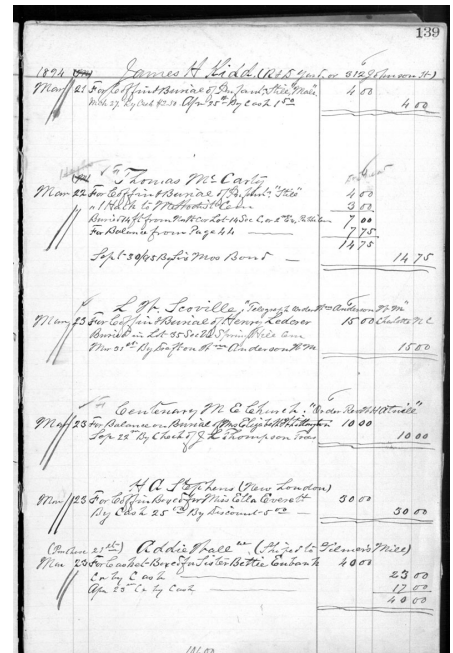 139
1894 James H Kidd (R & D Yard, or 312 Johnson St)
Mar 21 For Coffin & Burial of Infant "Still" "Male" 4 00
Mch 27 By Cash $2.50 Apr 25th By Cash 1 50 4 00
Thomas McCarty
Mar 22 For Coffin & Burial of Infant "Still" 4 00
" 1 Hack to Methodist Cem 3 00
Buried 14 ft from Lot 14 Sec C 7 00
For Balance from Page 44 7 75
14 75
Sept 30/95 By Six Mos Bond 14 75
L. W. Scoville "Telegraph Order Wm Anderson"
Mar 23 For Coffin & Burial of Henry Lederer 15 00 Charlotte N C
Buried in Lot 35 Sec Spring Hill Cem
Mar 31st By Draft on Wm Anderson 15 00
Centenary M E Church "Order Rev"
Mar 23 For Balance on Burial of Mrs Elizabeth 10 00
Sep 22nd By Check of J. Thompson Treas 10 00
H A Stephens (New London)
Mar 23 For Coffin Box &c for Miss Ella Everett 30 00
By Cash 25 00 By Discount 5 00 30 00
(Purchase 21st) Addie Hall (Shiped to Gilmer's Mill)
Mar 23 For Casket Box &c for Sister Bettie Eubank 40 00
Cr by Cash 23 00
Apr 23rd Cr by Cash 17 00
40 00